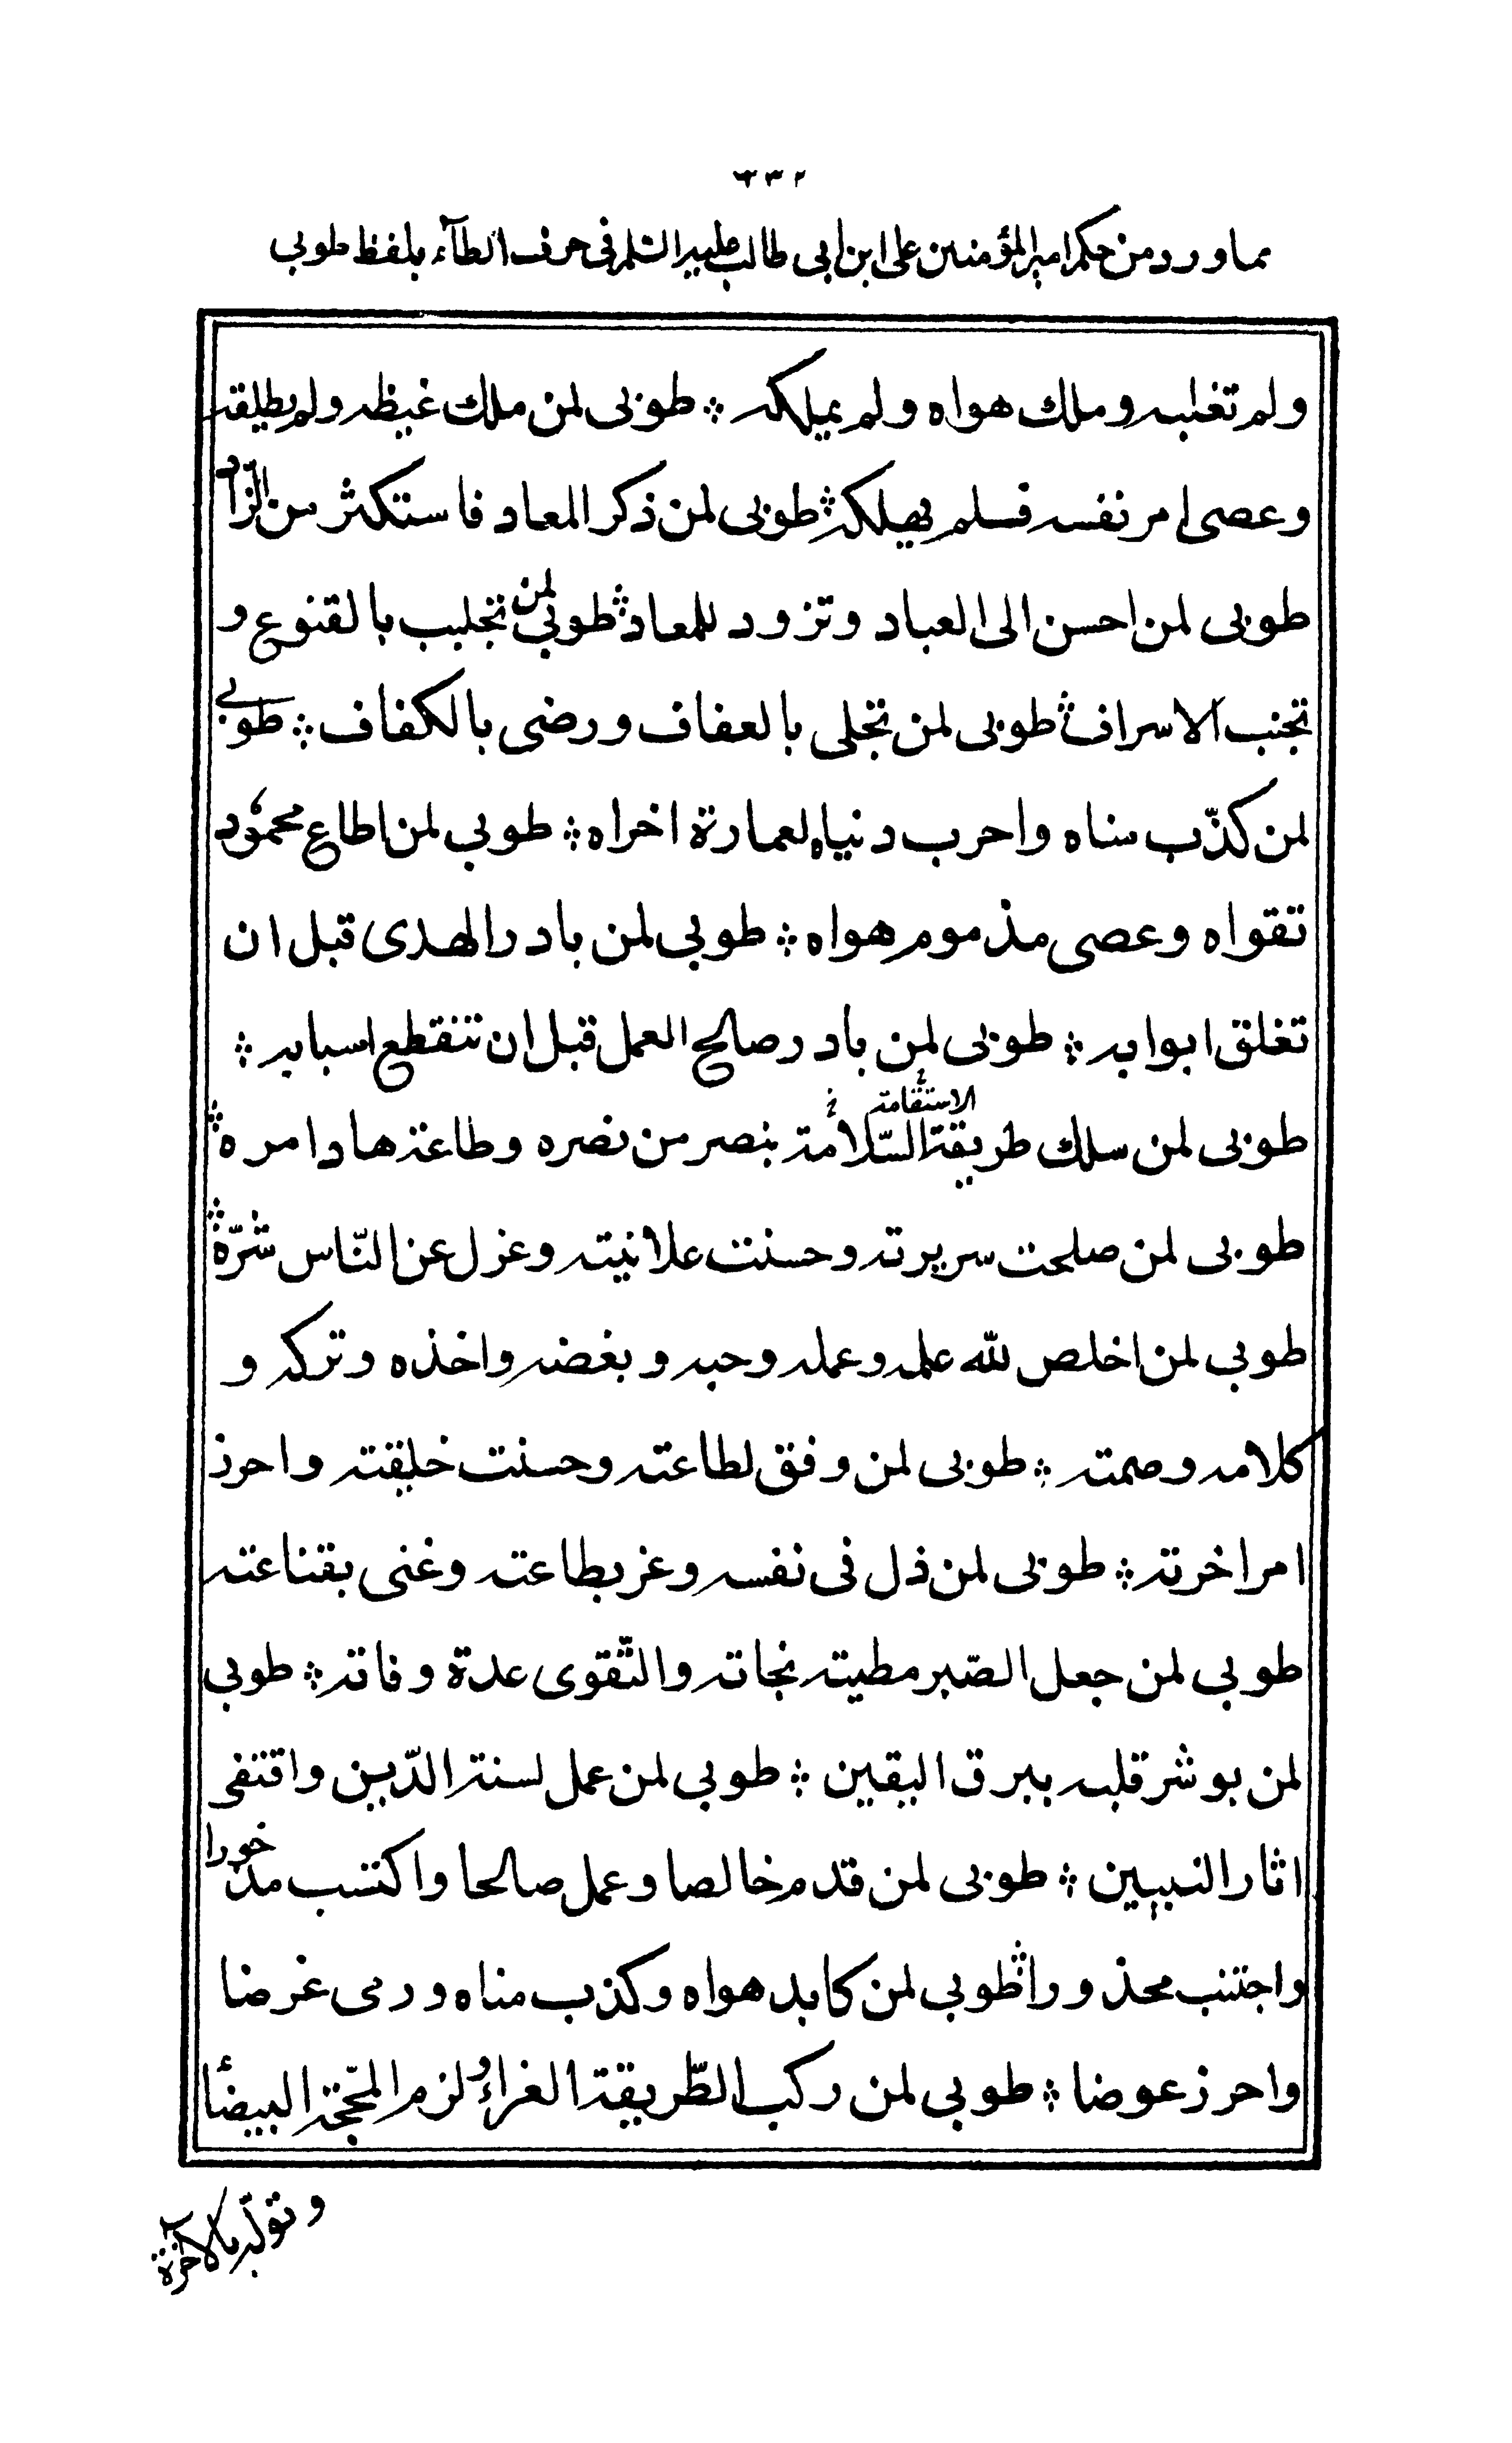 ٢٣٣
مما ورد من حكم امير المؤمنين على ابن ابى طالب عليه السّلم فى حرف الطآء بلفظ طوبى
ولم تغلبه وملك هواه ولم يملكه ؞ طوبى لمن ملك غيظه ولم يطلقه
وعصى امر نفسه فسلم يهلكه ؞ طوبى لمن ذكر المعاد فاستكثر من الزّاد
طوبى لمن احسن الى العباد وتزود للمعاد ؞ طوبى لمن تجلبب بالقنوع و
تجنب الاسراف ؞ طوبى لمن تجلى بالعفاف ورضى بالكفاف ؞ طوبى
لمن كذّب مناه واحرب دنياه لعمارة اخراه ؞ طوبى لمن اطاع محمود
تقواه وعصى مذموم هواه ؞ طوبى لمن بادر الهدى قبل ان
تغلق ابوابه ؞ طوبى لمن بادر صالح العمل قبل ان تنقطع اسبابه ؞
الاستقامة
طوبى لمن سلك طريقة السّلامة بنصر من نصره وطاعة هاد امره ؞
طوبى لمن صلحت سريرته وحسنت علانيته وعزل عن النّاس شرّه ؞
طوبى لمن اخلص لله علمه وعمله وحبه وبغضه واخذه وتركه و
كلامه وصمته ؞ طوبى لمن وفق لطاعته وحسنت خليقته واحرز
امر اخرته ؞ طوبى لمن ذل فى نفسه وعز بطاعته وغنى بقناعته
طوبى لمن جعل الصّبر مطية نجاته والتّقوى عدة وفاته ؞ طوبى
لمن بوشر قلبه ببرق اليقين ؞ طوبى لمن عمل لسنة الدّين واقتفى
اثار النبيين ؞ طوبى لمن قدم خالصا وعمل صالحا واكتسب مذخورا
واجتنب محذورا ؞ طوبى لمن كابد هواه وكذب مناه ورمى غرضا
واحرز عوضا ؞ طوبى لمن ركب الطّريقة الغراء ولزم المحجّة البيضاء
وتولّه بالآخرة